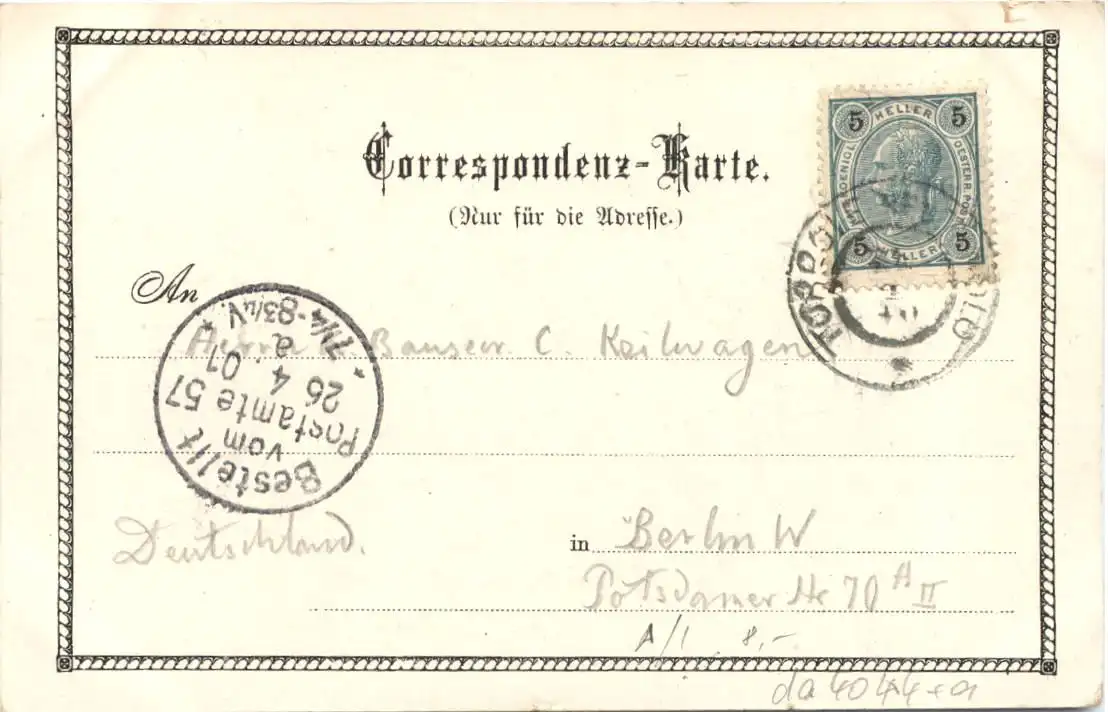 Correspondenz-Karte.
(Nur für die Adresse.)
5 HELLER 5
OESTERR. POST
5 HELLER 5
TORBOLE
An
Bestellt
vom
Postamte 57
26 4 01
a
* 7¼-8 3/4 V. *
Herrn Bauserr. C. Keilwagen
Deutschland.
in Berlin W
Potsdamer Str 70 A II
A/1 8,-
da4044+a